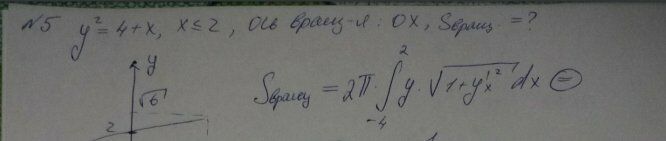 №5 y² = 4+x, x ≤ 2, ось вращ-я: OX, Sвращ. = ?
y
√6
2
Sвращ = 2π · ∫₋₄² y · √(1+y'ₓ²) dx =